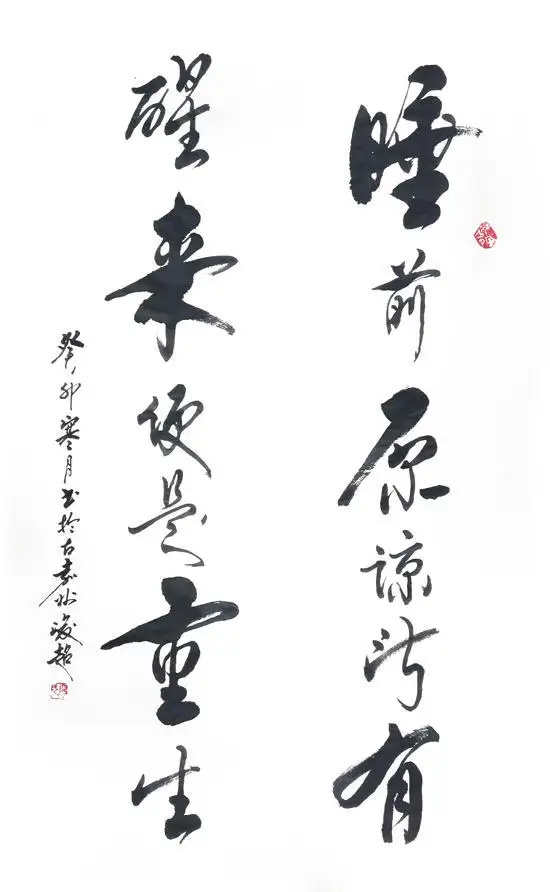 睡前原谅所有
醒来便是重生
癸卯寒月书於古袁州 峻超